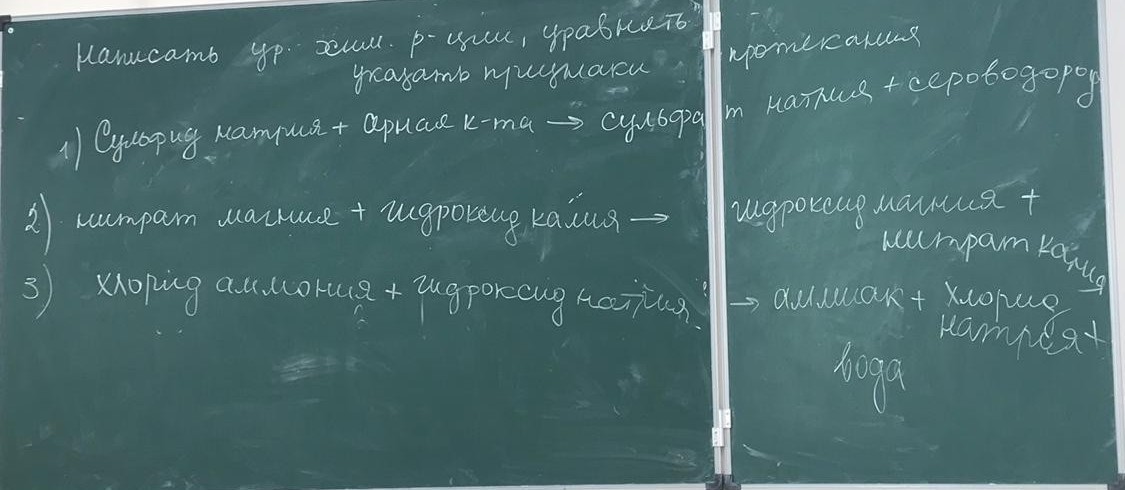 написать ур. хим. р-ции, уравнять
указать признаки протекания
1) Сульфид натрия + серная к-та → сульфат натрия + сероводород
2) нитрат магния + гидроксид калия → гидроксид магния +
нитрат калия
3) хлорид аммония + гидроксид натрия → аммиак + хлорид
натрия +
вода